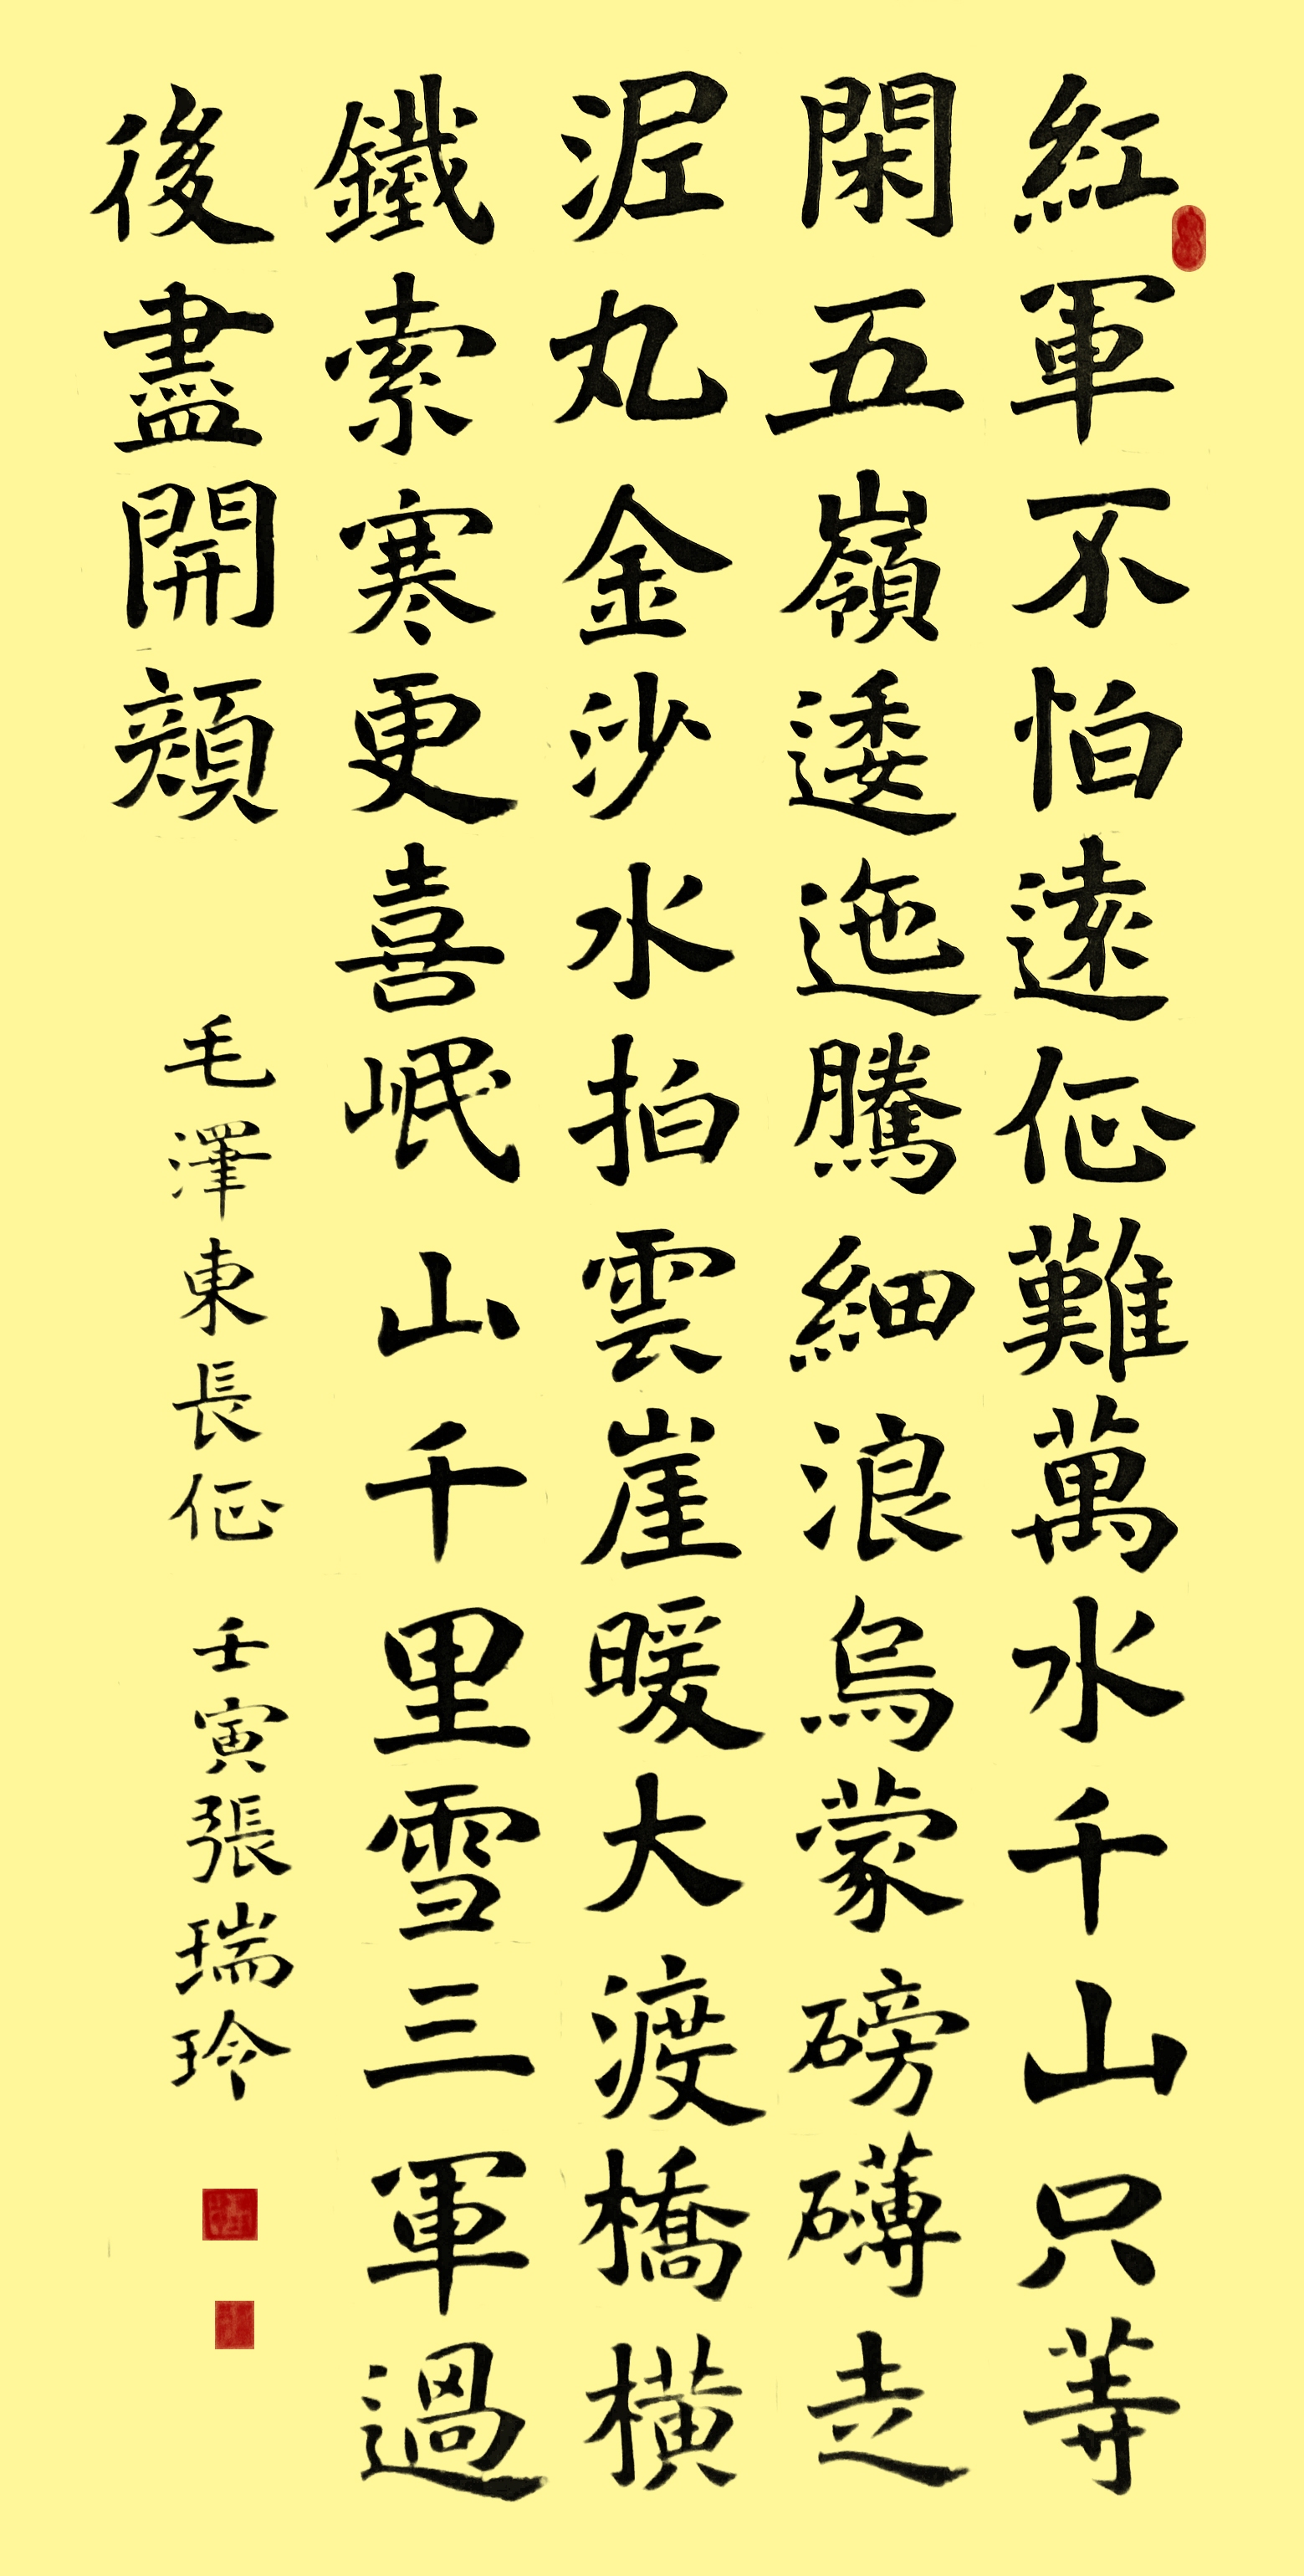 紅軍不怕遠征難萬水千山只等
閑五嶺逶迤騰細浪烏蒙磅礴走
泥丸金沙水拍雲崖暖大渡橋橫
鐵索寒更喜岷山千里雪三軍過
後盡開顏
毛澤東長征
壬寅張瑞玲